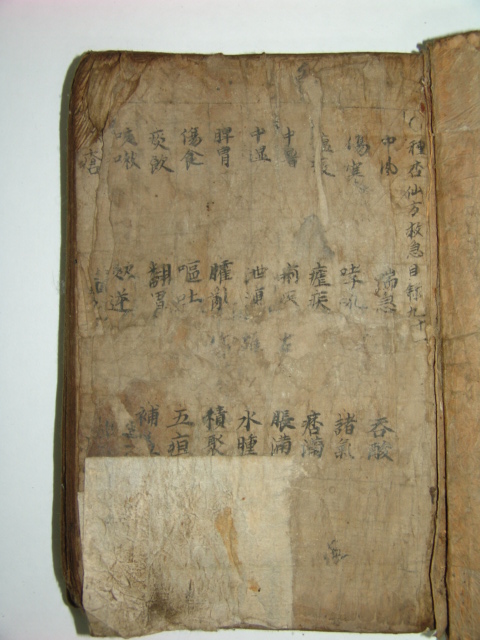 種杏仙方救急目錄九十
中風 喘急 吞酸
傷寒 哮吼 諸氣
瘟疫 瘧疾 痞滿
中暑 痢疾 脹滿
中濕 泄瀉 水腫
脾胃 霍亂 積聚
傷食 嘔吐 五疸
痰飲 翻胃 補
咳嗽 逆